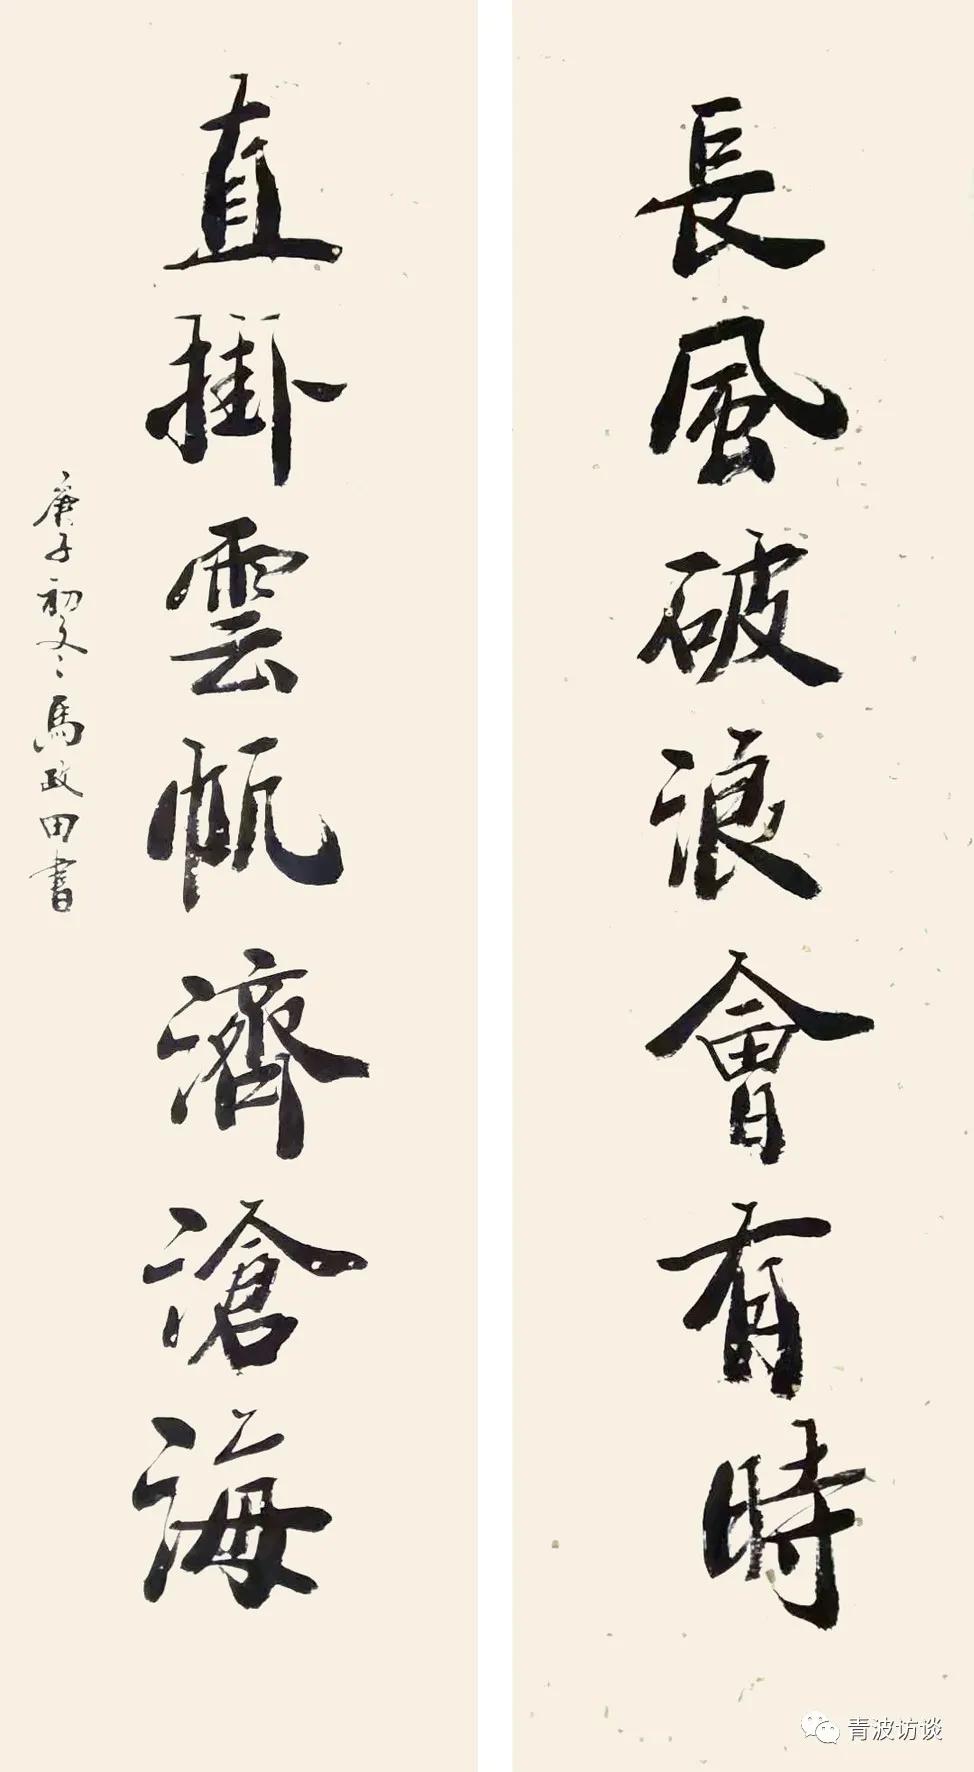 長風破浪會有時
直掛雲帆濟滄海
庚子初冬馬政田書
青波访谈